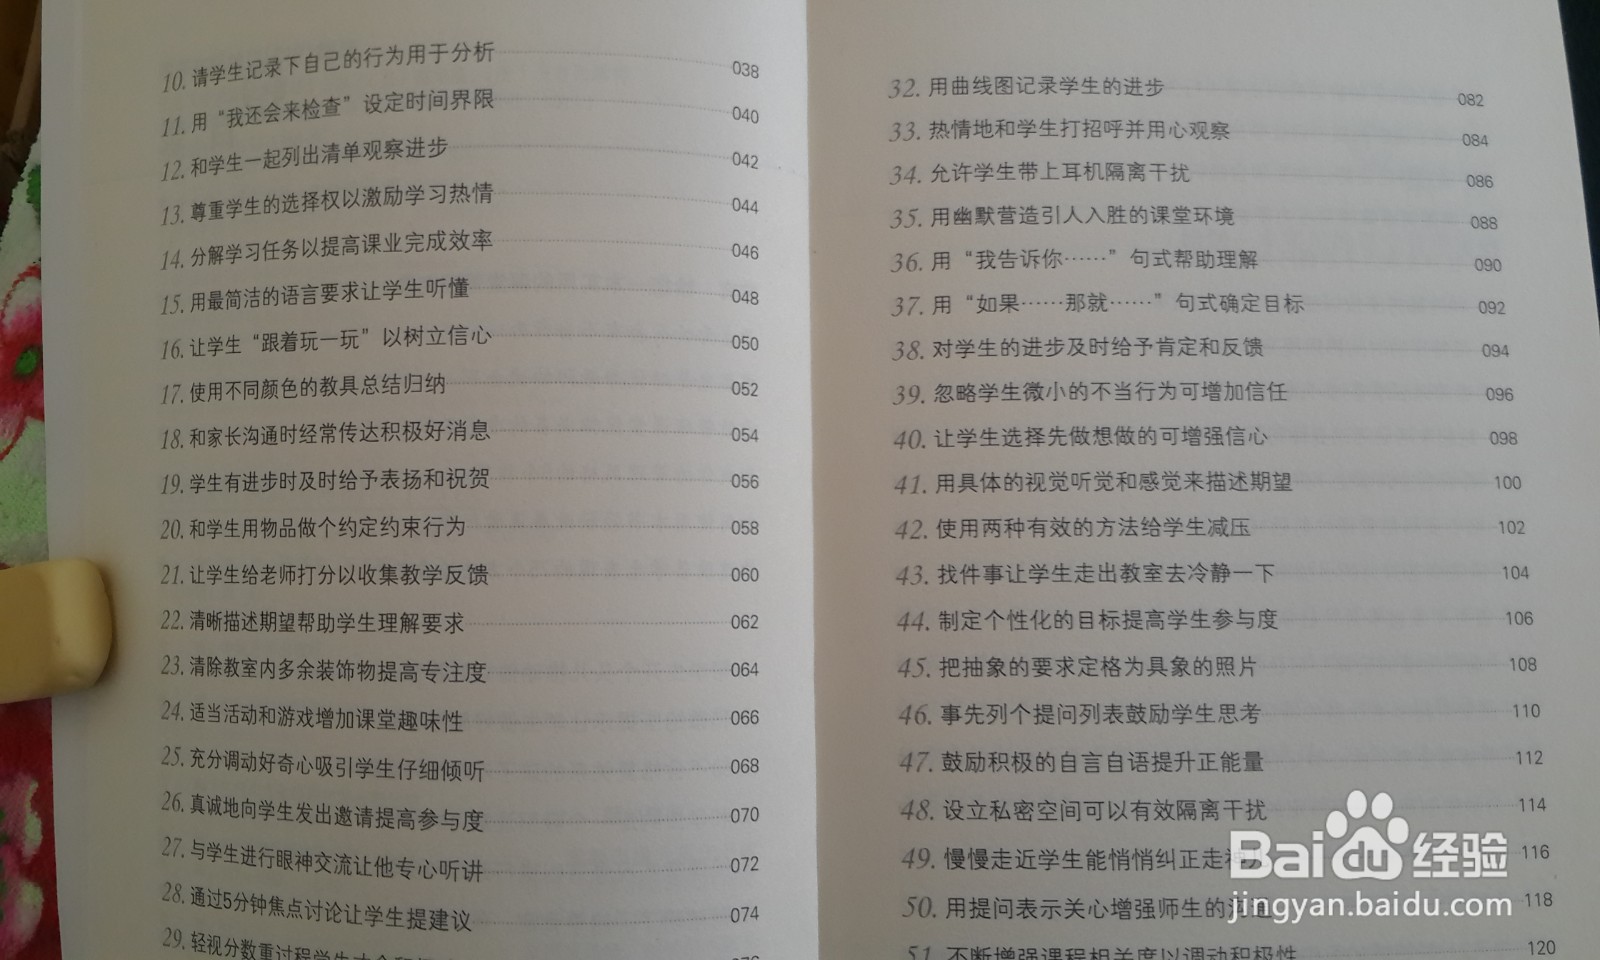 10. 请学生记录下自己的行为用于分析 038
11. 用“我还会来检查”设定时间界限 040
12. 和学生一起列出清单观察进步 042
13. 尊重学生的选择权以激励学习热情 044
14. 分解学习任务以提高课业完成效率 046
15. 用最简洁的语言要求让学生听懂 048
16. 让学生“跟着玩一玩”以树立信心 050
17. 使用不同颜色的教具总结归纳 052
18. 和家长沟通时经常传达积极好消息 054
19. 学生有进步时及时给予表扬和祝贺 056
20. 和学生用物品做个约定约束行为 058
21. 让学生给老师打分以收集教学反馈 060
22. 清晰描述期望帮助学生理解要求 062
23. 清除教室内多余装饰物提高专注度 064
24. 适当活动和游戏增加课堂趣味性 066
25. 充分调动好奇心吸引学生仔细倾听 068
26. 真诚地向学生发出邀请提高参与度 070
27. 与学生进行眼神交流让他专心听讲 072
28. 通过5分钟焦点讨论让学生提建议 074
29. 轻视分数重过程学生
32. 用曲线图记录学生的进步 082
33. 热情地和学生打招呼并用心观察 084
34. 允许学生带上耳机隔离干扰 086
35. 用幽默营造引人入胜的课堂环境 088
36. 用“我告诉你……”句式帮助理解 090
37. 用“如果……那就……”句式确定目标 092
38. 对学生的进步及时给予肯定和反馈 094
39. 忽略学生微小的不当行为可增加信任 096
40. 让学生选择先做想做的可增强信心 098
41. 用具体的视觉听觉和感觉来描述期望 100
42. 使用两种有效的方法给学生减压 102
43. 找件事让学生走出教室去冷静一下 104
44. 制定个性化的目标提高学生参与度 106
45. 把抽象的要求定格为具象的照片 108
46. 事先列个提问列表鼓励学生思考 110
47. 鼓励积极的自言自语提升正能量 112
48. 设立私密空间可以有效隔离干扰 114
49. 慢慢走近学生能悄悄纠正走神 116
50. 用提问表示关心增强师生的沟通 118
51. 不断增强课程相关度以调动积极性 120
Baidu 经验
jingyan.baidu.com